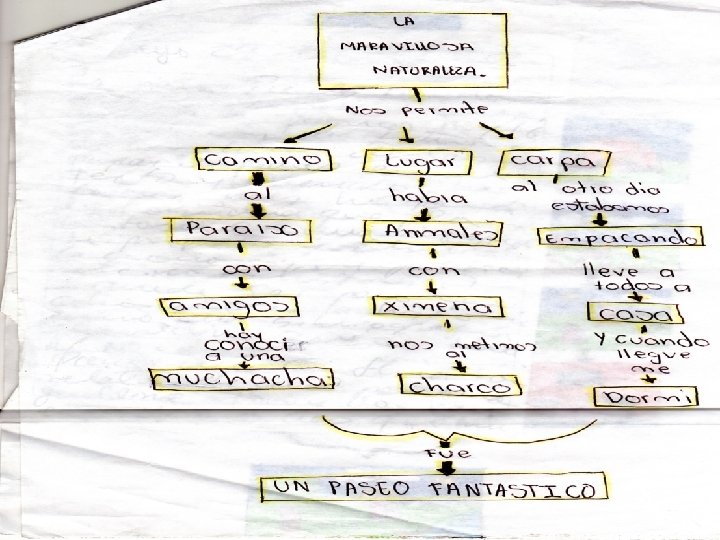 LA
MARAVILLOSA
NATURALEZA.
Nos permite
Camino
al
Paraiso
con
amigos
hay
conoci
a una
muchacha
Lugar
habia
Animales
con
ximena
nos metimos
al
charco
carpa
al otro dia
estabamos
Empacando
lleve a
todos a
casa
Y cuando
llegue
me
Dormi
FUE
UN PASEO FANTASTICO